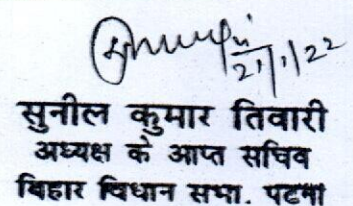 21/1/22
सुनील कुमार तिवारी
अध्यक्ष के आप्त सचिव
बिहार विधान सभा. पटना